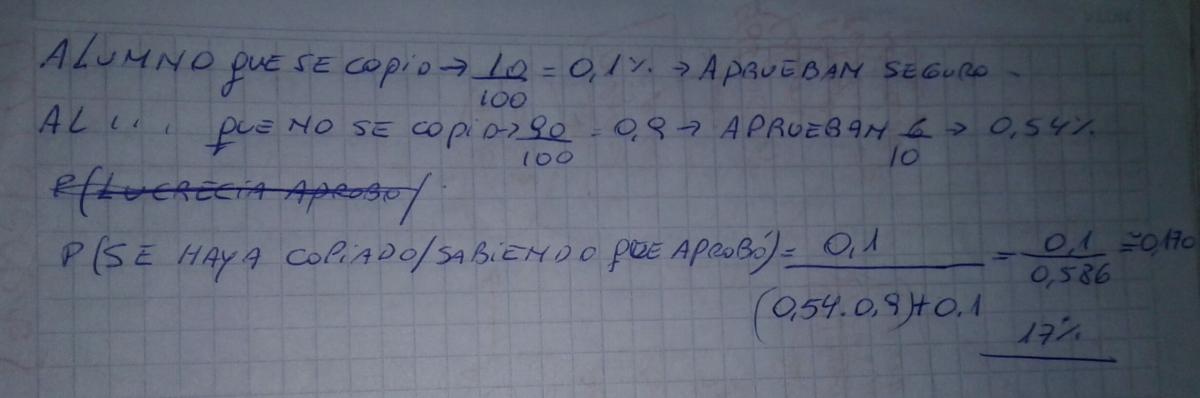 ALUMNO QUE SE COPIO → 10/100 = 0,1% → APRUEBAN SEGURO.
AL '' '' QUE NO SE COPIO → 90/100 = 0,9 → APRUEBAN 6/10 → 0,54%
P(LUCRECIA APROBO)
P(SE HAYA COPIADO/SABIENDO QUE APROBÓ) = 0,1/((0,54.0,9)+0.1) = 0,1/0,586 ≅ 0,170
17%